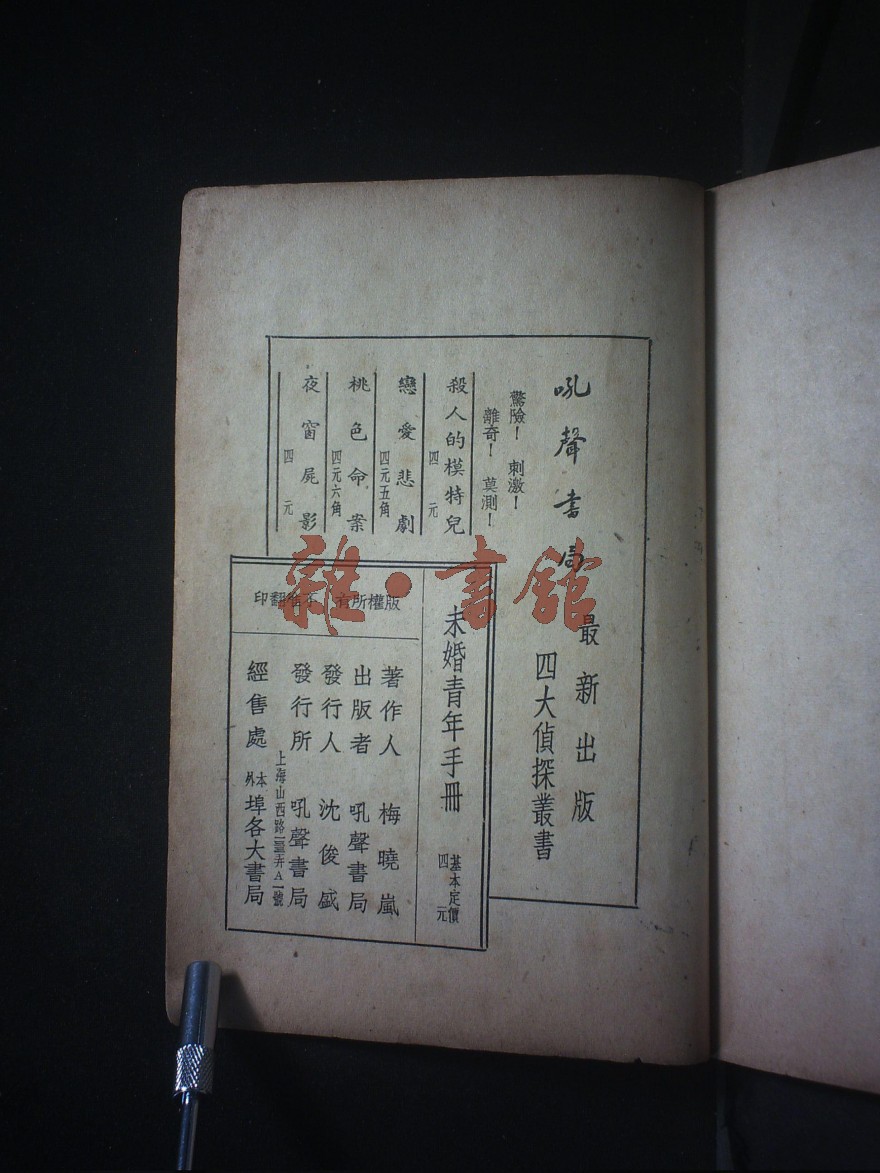 吼聲書局
最新出版
四大偵探叢書
驚險！ 刺激！
離奇！ 莫測！
殺人的模特兒 四元
戀愛悲劇 四元五角
桃色命案 四元六角
夜窗屍影 四元
未婚青年手冊 基本定價 四元
版權所有 不准翻印
著作人 梅曉嵐
出版者 吼聲書局
發行人 沈俊盛
發行所 吼聲書局
上海山西路 弄A一號
經售處 本外埠各大書局
雜·書館